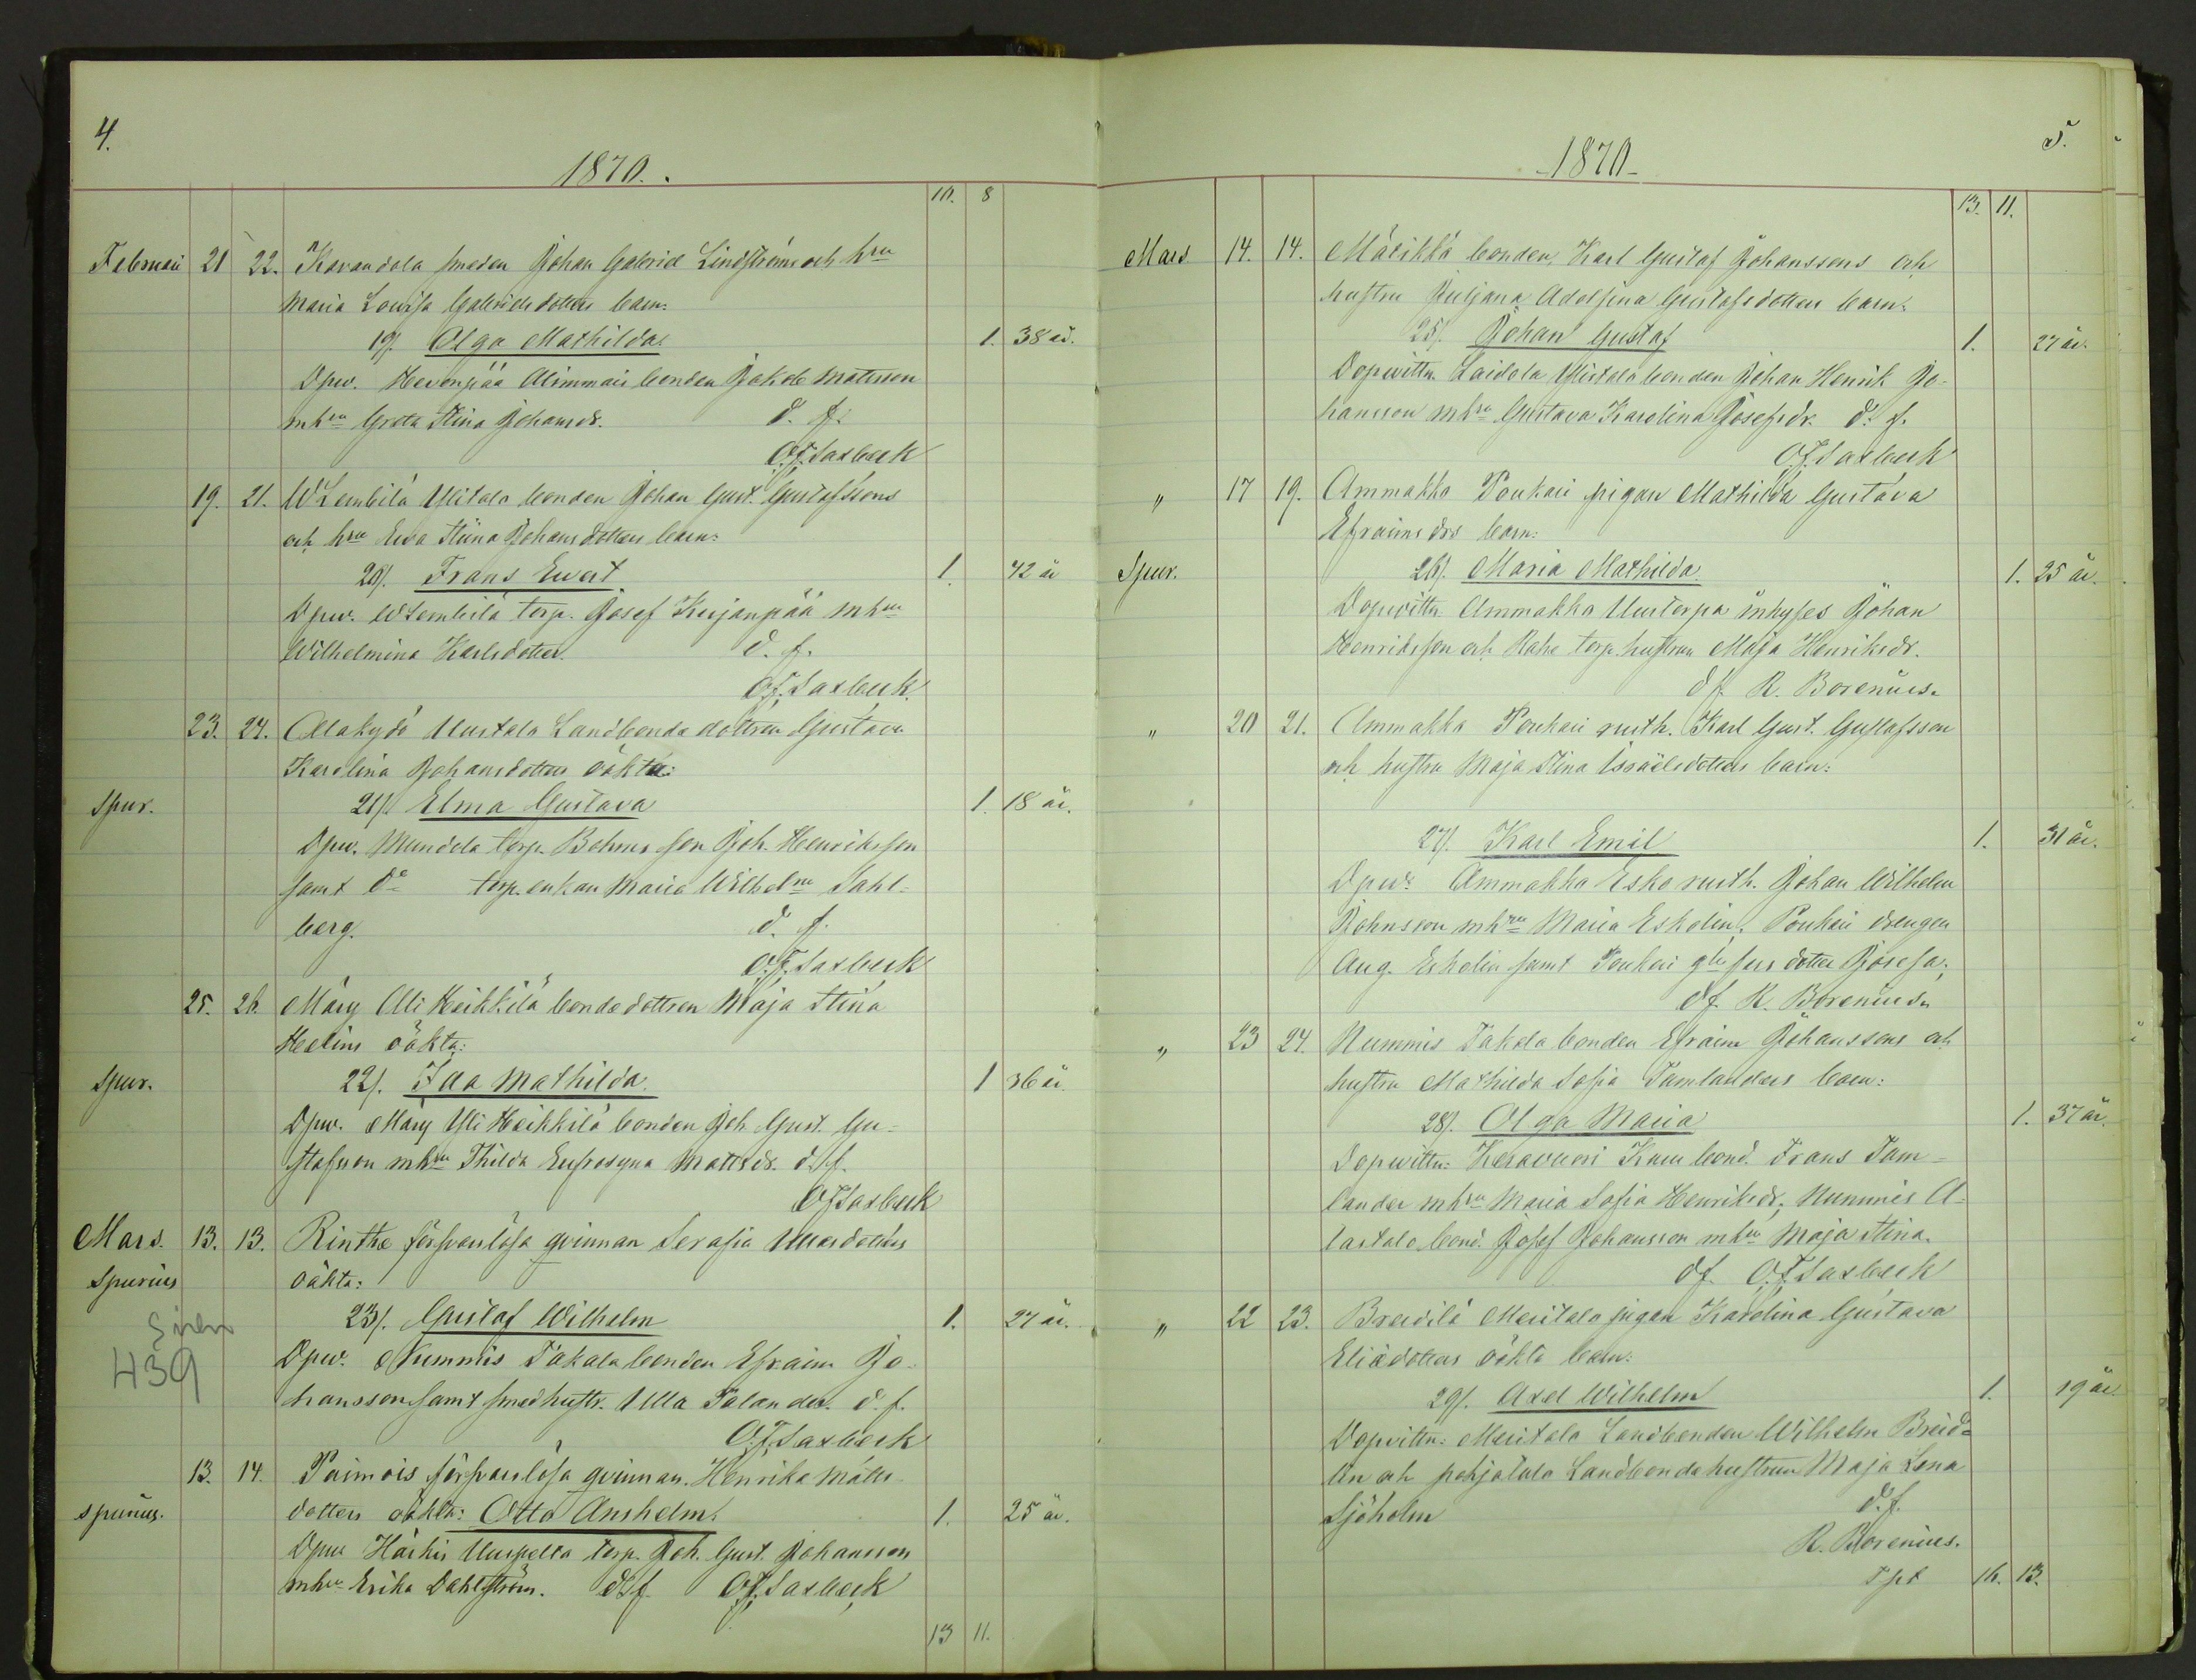 4.
1870.
10. 8
Februari 21 22. Karandola smeden Johan Gabriel Lindströms och hru
Maria Lovisa Gabrielsdotters barn:
19/. Olga Mathilda 1. 38 år.
Dpw. Hevonpää Alimmais bonden Jakob Matsson
mhru Greta Stina Johansdr. d. f.
O.F. Saxbeck
19. 21. WLembilä Ylitalo bonden Johan Gust. Gustafssons
och hru Eva Stina Johansdotters barn:
20/. Frans Evert 1. 42 år
Dpw. WLembilä torp. Josef Kujanpää mhru
Wilhelmina Karlsdotter. d. f.
O.F. Saxbeck.
23. 24. Uustalo Landbonde dottren Gustava
Karolina Johansdotters oäkta:
Spur. 21/. Elma Gustava 1. 18 år.
Dpw. Mundola torp. Bohms son Joh. Henriksson
samt do torp. enkan Maria Wilhelna Sahl-
berg. d. f.
O.F. Saxbeck
25. 26. Märy Heikkilä bondedottren Maja Stina
Helins oäkta:
Spur. 22/. Ida Mathilda. 1 36 år
Dpw. Märy Yli Heikkilä bonden Joh. Gust. Gu-
stafsson mhru Thilda Eufrosyna Mattsdr. d. f.
O.F. Saxbeck
Mars. 13. 13. Rinthe försvarslösa qvinnan Serafia
Spurius oäkta:
23/. Gustaf Wilhelm 1. 27 år.
439
Dpw. Nummis Takala bonden Efraim Jo-
hansson samt smedhustr. Ulla Salander. d. f.
O.F. Saxbeck
13. 14. Paimois försvarslösa qvinnan Henrika Matts-
spurius. dotters oäkta: Otto Anshelm. 1. 25 år.
Dpw Härkis torp. Joh. Gust. Johansson
mhru Erika Dahlström. d. f. O.F. Saxbeck
13 11.
5.
1870
13. 11.
Mars 14. 14. Märikkä bonden Karl Gustaf Johanssons och
hustru Juljana Adolfina Gustafsdotters barn:
25/. Johan Gustaf 1. 27 år.
Dopvittn. Laidola Ylitalo bonden Johan Henrik Jo-
hansson mhru Gustava Karolina Josefsdr. d. f.
O.F. Saxbeck
" 17 19. Ammakko Poukari pigan Mathilda Gustava
Efraimsdrs barn:
Spur. 26/. Maria Mathilda 1. 25 år.
Dopvittn. Ammakko Uustorpa inhyses Johan
Henriksson och torp. hustrun Maja Henriksdr.
d f. R. Borenius.
" 20 21. Ammakko Poukari rusth. Karl Gust. Gustafsson
och hustru Maja Stina Israelsdotters barn:
27/. Karl Emil 1. 31 år.
Dpwr Ammakko Esko rusth. Johan Wilhelm
Johnsson mhru Maria Eskolin, Poukari drengen
Aug. Eskolin samt Poukari dotter Josefa.
d f. R. Borenius.
" 23 24. Nummis Takala bonden Efraim Johanssons och
hustru Mathilda Sofia Tamlanders barn:
28/. Olga Maria 1. 37 år.
Dopvittn: Keravuori bond. Frans Tam-
lander mhru Maria Sofia Henriksdr, Nummis A-
lastalo bond. Josef Johansson mhru Maja Stina.
d f. O.F. Saxbeck
" 22 23. Breidilä Meritalo pigan Karolina Gustava
Eliädotters oäkta barn:
29/. Axel Wilhelm 1. 19 år
Dopvittn: Meritalo Landbonden Wilhelm Breid-
lin och pohjatalo Landbonde hustrun Maja Lena
Sjöholm d. f.
R. Borenius.
Tpt 16. 13.